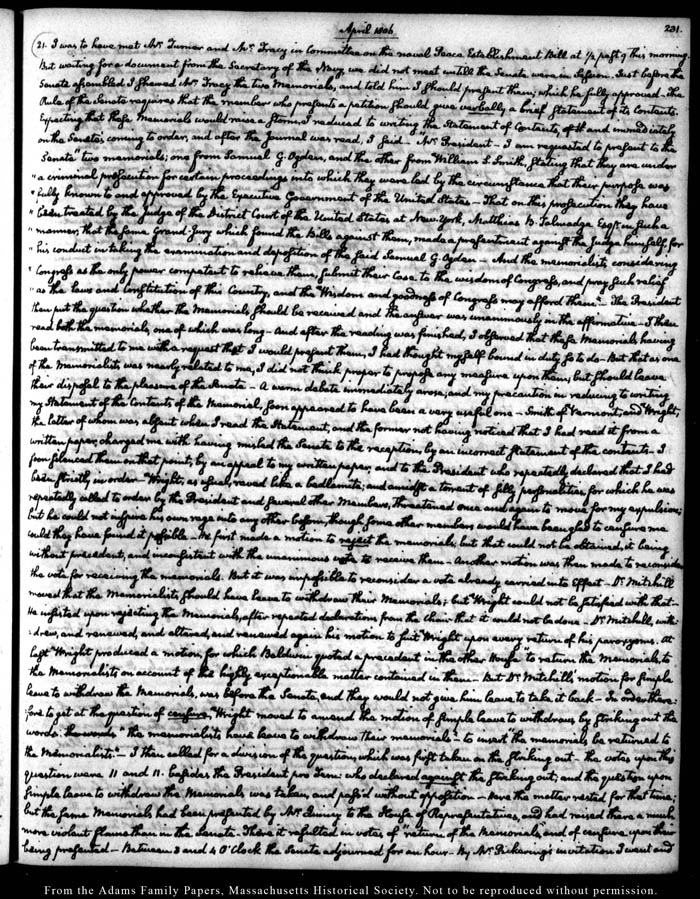 April 1806
231.
21. I was to have met Mr. Turner and Mr. Tracy in Committee on the naval Peace Establishment Bill at ½ past 9 this morning.
But waiting for a document from the Secretary of the Navy, we did not meet untill the Senate were in Session. Just before the
Senate assembled I shewed Mr Tracy the two Memorials, and told him I should present them; which he fully approved. The
Rule of the Senate requires that the member who presents a petition, should give verbally a brief statement of its Contents.
Expecting that these Memorials would raise a storm, I reduced to writing the Statement of Contents, and immediately
on the Senate's coming to order, and after the Journal was read, I said — "Mr. President — I am requested to present to the
Senate two memorials; one from Samuel G. Ogden, and the other from William S. Smith, stating that they are under
"a criminal prosecution for certain proceedings into which they were led by the circumstance that their purpose was
"fully known to and approved by the Executive Government of the United States — That on this prosecution they have
"been treated by the Judge of the District Court of the United States at New York, Matthias B. Talmadge Esqr. in such a
"manner, that the same Grand-Jury which found the Bills against them, made a presentment against the Judge himself, for
"his conduct in taking the examination and deposition of the said Samuel G. Ogden — And the memorialists considering
"Congress as the only power competent to relieve them, submit their Case to the wisdom of Congress, and pray such relief
"as the laws and Constitution of this Country, and the Wisdom and goodness of Congress may afford them." — The President
then put the question whether the Memorials should be received and the answer was unanimously in the affirmative — I then
read both the memorials, one of which was long — And after the reading was finished, I observed that these Memorials having
been transmitted to me with a request that I would present them, I had thought myself bound in duty so to do — But that as one
of the Memorialists was nearly related to me, I did not think proper to propose any measure upon them, but should leave
their disposal to the pleasure of the Senate — A warm debate immediately arose, and my precaution in reducing to writing
my Statement of the Contents of the Memorial, soon appeared to have been a very useful one — Smith of Vermont, and Wright,
the latter of whom was absent when I read the Statement, and the former not having noticed that I had read it from a
written paper, charged me with having misled the Senate to the reception, by an incorrect Statement of the contents — I
soon silenced them on that point, by an appeal to my written paper, and to the President who repeatedly declared that I had
been strictly in order — Wright, as usual, raved like a bedlamite; and amidst a torrent of silly personalities, for which he was
repeatedly called to order by the President and several other Members, threatened once and again to move for my expulsion;
but he could not infuse his own rage into any other bosom, though some other members would have been glad to censure me
could they have found it possible — He first made a motion to reject the memorials; but that could not be obtained, it being
without precedent, and inconsistent with the unanimous vote to receive them — Another motion was then made to reconsider
the vote for receiving the memorials. But it was impossible to reconsider a vote already carried into Effect — Dr. Mitchill
moved that the Memorialists should have leave to withdraw their Memorials; but Wright could not be satisfied with that —
He insisted upon rejecting the Memorials, after repeated declarations from the Chair that it could not be done — Dr Mitchill, with-
:drew, and renewed, and altered, and renewed again his motion to suit Wright upon every return of his paroxysms. At
last Wright produced a motion, for which Baldwin quoted a precedent in the other House "to return the Memorials, to
the Memorialists, on account of the highly exceptionable matter contained in them — But Dr Mitchill's motion for simple
leave to withdraw the Memorials, was before the Senate, and they would not give him leave to take it back — In order there:
:fore to get at the question of censure, Wright moved to amend the motion of simple leave to withdraw, by striking out the
words: the words "the memorialists have leave to withdraw their memorials" — to insert "the memorials be returned to
the Memorialists" — I then called for a division of the question; which was first taken on the striking out — the votes upon this
question were 11 and 11. besides the President pro Tem: who declared against the striking out; and the question upon
simple leave to withdraw the Memorials was taken, and pass'd without opposition — Here the matter rested for that time;
but the same Memorials had been presented by Mr. Quincy to the House of Representatives, and had raised there a much
more violent flame than in the Senate. There it resulted in votes of return of the Memorials, and of censure upon their
being presented — Between 3 and 4 O'Clock the Senate adjourned for an hour — By Mr. Pickering's invitation I went and
From the Adams Family Papers, Massachusetts Historical Society. Not to be reproduced without permission.